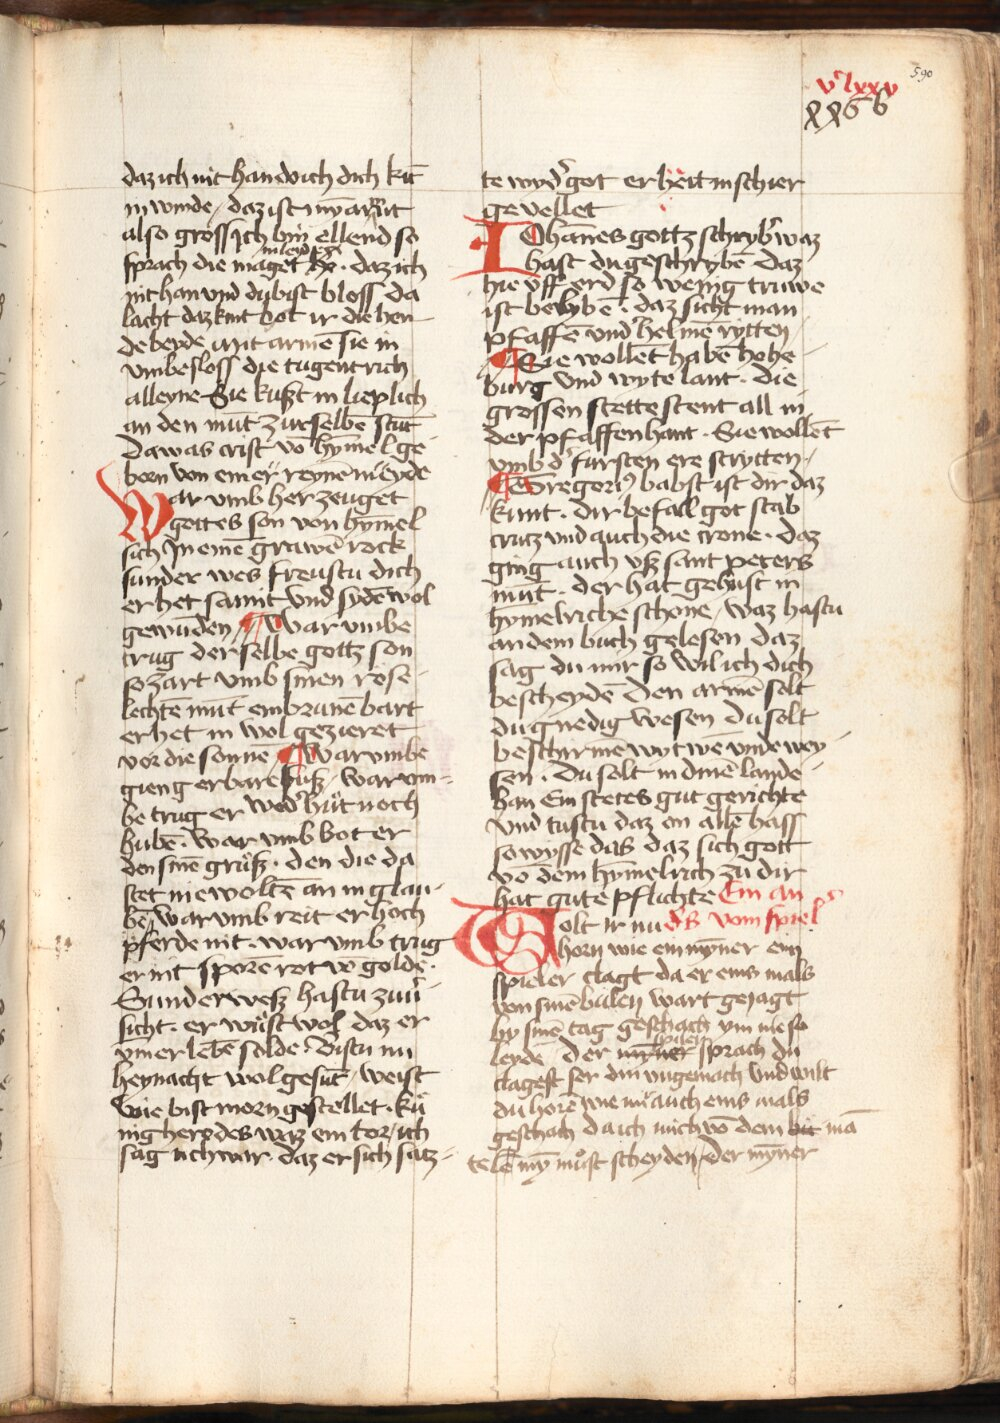 590
vclxxv
daz ich nit han do ich dich kū
in winde / daz ist my̅ arm̅t
also gross Ich bin ellend so
in leyde
sprach die maget . daz ich
nit han vnd du bist bloss da
lacht daz kint bot ir die hen
de beyde mit arme sie in
vmbesloss die tugentrich
alleyne Sie kußt in lieplich
an den mūt zur selbē stūt
Da was crist vō hy̅mel ge
born von einer reynē meyde
War vmb her zeuget
gottes son von hy̅mel
sich In einē grawē rock
sunder wes freustu dich
er het samit vnd sydē wol
gewūden / war vmbe
trug der selbe gottz son
so zart vmb sinen rose
lechtē mūt ein brunē bart
er het in wol gezieret
vor die sonne / war vmbe
gieng er bare fuß / war vm
be trug er wed' hůt noch
hubē . war vmb bot er
den sinē grůß . den die da
stet nie woltē an in glau
bē / war vmb reit er hoch
pferde nit . war vmb trug
er nit sporē rot vō golde .
Sunder weß hastu zuů
sicht . er wůst wol daz er
ym erlebē solde . Bistu nu
heynacht wol gesūt / weist
wie bist morn gestellet . ků
nig herodes waz ein tor / ich
sag uch war . daz er sich satz
te wyd' got er heit in schier
gevellet
IOhānes gottz schryb' waz
hast du geschrybē daz
hie vff erd so wenig truwe
ist belybē . daz sicht man
pfaffē vnd helme rytten
Sie wollēt habē hohe
burg vnd wyte lant . die
grossen stette stent all in
der pfaffen hant . Sie wollēt
vmb d' fursten ere strytten .
Gregori9 babst ist dir daz
kunt . dir befall got stab
crutz vnd auch die crone . daz
ging auch vß sant peters
mūt . der hat gehust in
hy̅melriche schone / waz hastu
an dem buch gelesen daz
sag du mir so wil ich dich
bescheydē Den armē solt
du gnedig wesen du solt
beschirmē wytwē vnde wey
sen . Du solt in dinē lande
han Ein stetes gut gerichte
vnd tustu daz on allē hass
so wysse das daz sich gott
vō dem hy̅melrich zů dir
hat gute pflichte Ein an
SOlt ir nu d's vom spiel
horn wie ein my̅ner ein
spieler clagt da er eins mals
von sine bulen wart gejagt
by sinē tag geschach ym nie so
leyde der spieler sprach du
clagest ser din vngemach vnd wilt
du horē wie mir auch eins mals
geschach da ich mich vō dem mā
telē my̅ můst scheyden / der my̅ner